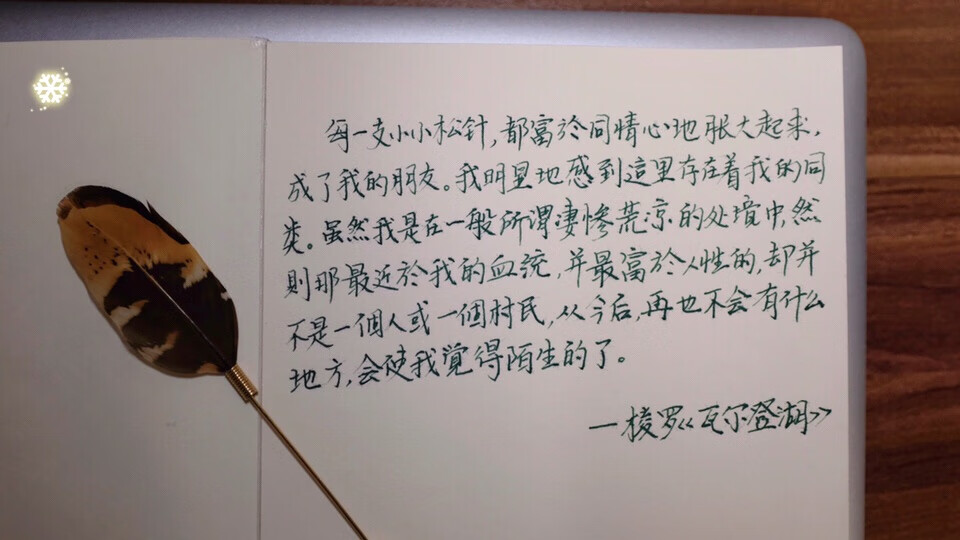 每一支小小松针，都富於同情心地胀大起来，
成了我的朋友。我明显地感到這里存在着我的同
类。虽然我是在一般所谓凄惨荒凉的处境中，然
则那最近於我的血统，并最富於人性的，却并
不是一個人或一個村民，从今后，再也不会有什么
地方，会使我覺得陌生的了。
—梭罗《瓦尔登湖》